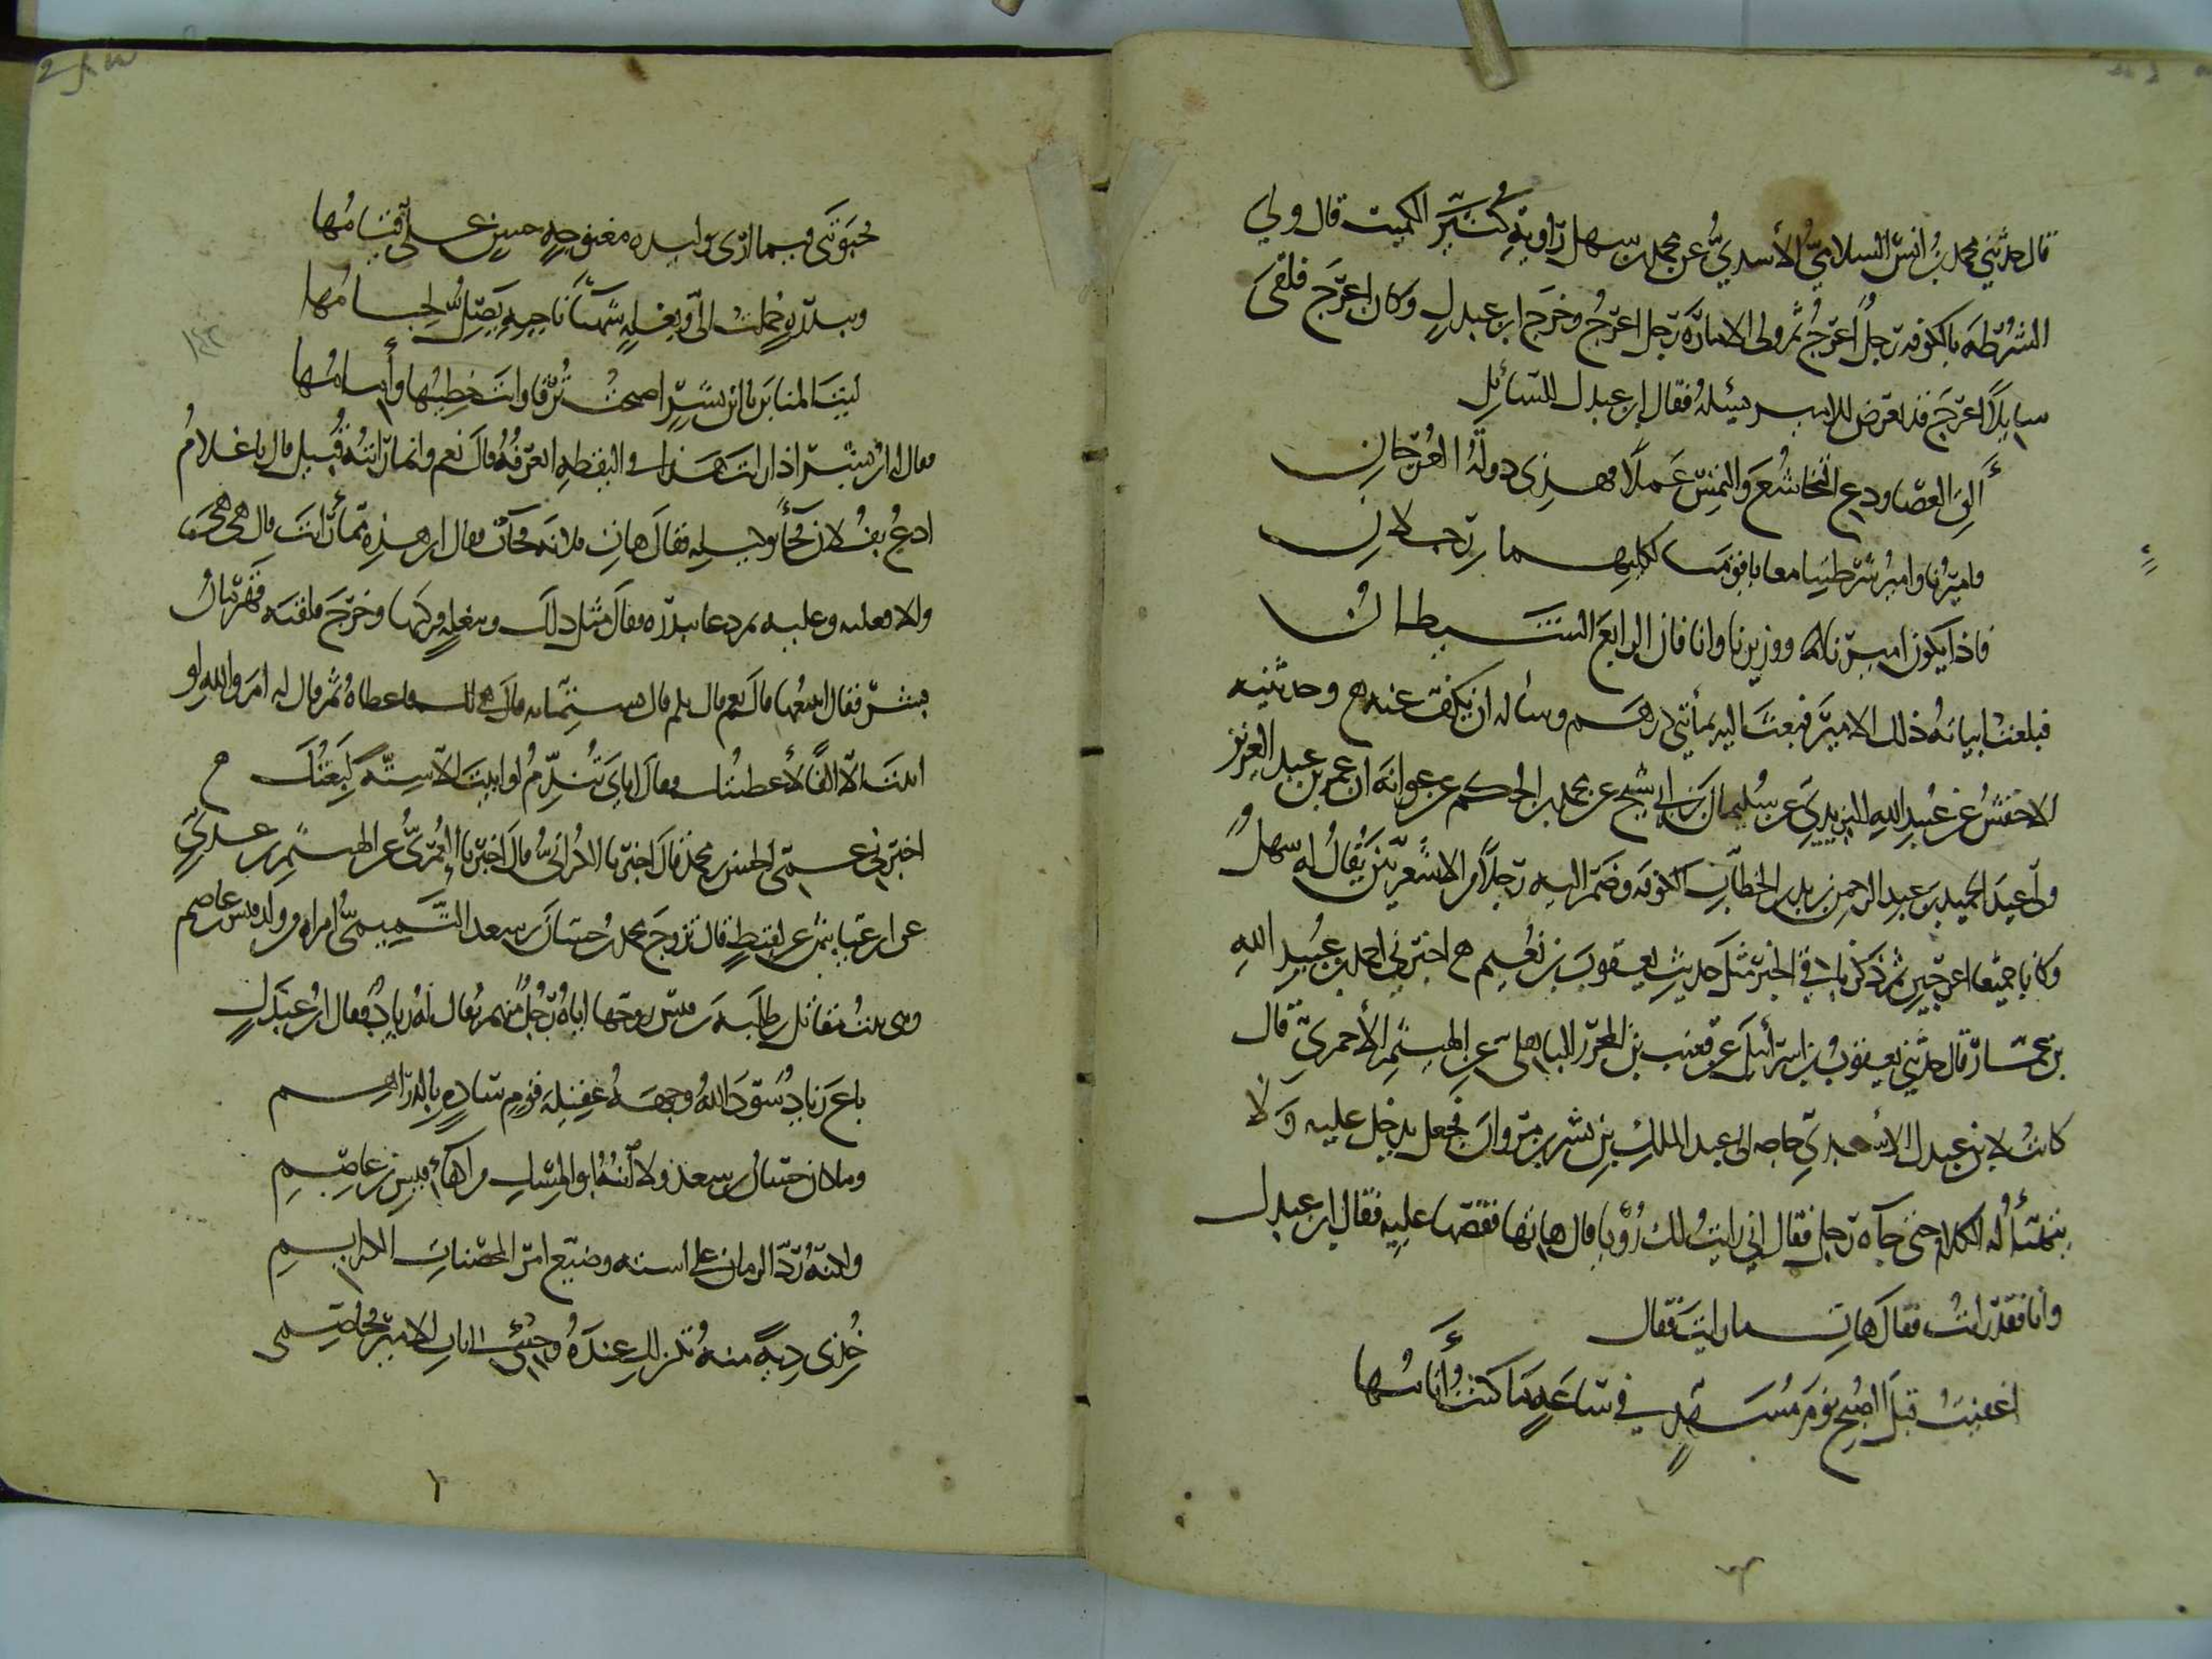 قال حدثني محمد بن انس السلاميّ الأسديُّ عن محمد بن سهل راوية الكميت قال ولي
الشرطة بالكوفه رجلٌ اعرجُ ثم ولى الامارة رجل اعرجُ وخرج ابن عبدلٍ وكان اعرج فلقى
سايلاً اعرج قد تعرض للامير يسئلهُ فقال ابن عبدل للسائلِ
ألق العصا ودع التخاشعَ والتمس عملاً فهذى دولةُ العُرجانِ
فاميرنا وامير شرطتنا معا يا قومنا لكليهما رجلانِ
فاذا يكون اميرنا ووزيرنا وانا فان الرابع الشيطانُ
فبلغت ابياتهُ ذلك الامير فبعث اليه بمأتي درهم وسأله ان يكف عنه وحدثنيه
الاخفشُ عن عُبيد الله اليزيديّ عن سُليمان بن ابى شيخ عن محمد بن الحكم عن عوانة ان عمر بن عبد العزيز
ولّى عبد الحميد بن عبد الرحمن بن زيد بن الخطاب الكوفه وضم اليه رجلاً من الاشعريين يُقالُ له سهلٌ
وكانا جميعا اعرجين ثم ذكر باقي الخبر مثل حديث يعقوب بن نعيم اخبرني احمد بن عُبيد الله
بن عمار قال حدثني يعقوب بن اسرائيل عن قعنب بن المحرر الباهلى عن الهيثم الأحمريّ قال
كانت لابن عبدل الاسدي حاجه الى عبد الملك بن بشر بن مروان فجعل يدخل عليه وَلا
يتهيّأ له الكلام حتى جآه رجل فقال اني رايتُ لك رُؤيا قال هاتها فقصها عليه فقال ابن عبدل
وانا فقد رايتُ فقال هات ما رايت فقال
اغفيتُ قبل الصبح نوم مُسهدٍ في ساعةٍ ما كنتُ أنامُها
فحبوتنى فيما ارى بوليده مغنوجةٍ حسنٍ علىّ قيامُها
وببدرةٍ حُملت الىّ وبغلةٍ شهبآ ناجيةٍ يَصِلُّ لجامُها
ليت المنابر يا ابن بشرٍ اصبحت تُرقا وانت خطيبُها وأمامُها
فقال له ابن بشر اذا رايت هذا في اليقظه اتعرفُهُ قال نعم وانما رايتُهُ قُبيل قال يا غلامُ
ادعُ فلانا فجأ بوكيله فقال هاتِ فلانه فجآت فقال اين هذه مما رايت قال هى هى
والا فعليه وعليه ثم دعا ببدره فقال مثل ذلك وببغلةٍ فركبها وخرج فلقيه قهرمانُ
بشر فقال اتبيعُها قال نعم قال بكم قال بستمايه قال هى لك فاعطاهُ ثم قال له اما واللهِ لو
ابيت الا الفًا لأعطيتُك فقال اياي تُندّمُ لو ابيت الا ستّةً لبِعتُك
اخبرني عمى الحسن بن محمد قال اخبرنا الكُرانيُّ قال اخبرنا العُمريُّ عن الهيثم بن عديّ
عن ابن عيّاش عن لقيطٍ قال تزوج محمد بن حسان بن سعد التميميُّ امراه من ولد قيس بن عاصم
وهى بنتُ مقاتل بن طلبه بن قيس زوجها اياه رجلٌ منهم يُقال لهُ زيادٌ فقال ابن عبدلٍ
باع زيادٌ سَوّدَ اللهُ وجهَهُ عقيلة قومٍ سادةٍ بالدراهم
وما كان حسان بن سعد ولا ابنُهُ ابو المسك من اكفأ قيس بن عاصمِ
ولكنّهُ ردّ الزمان على استه وضيّع امر المحصنات الكرايمِ
خُذى ديةً منهُ تكن لكِ عندهُ وجيئى الى باب الامير فخاصمى